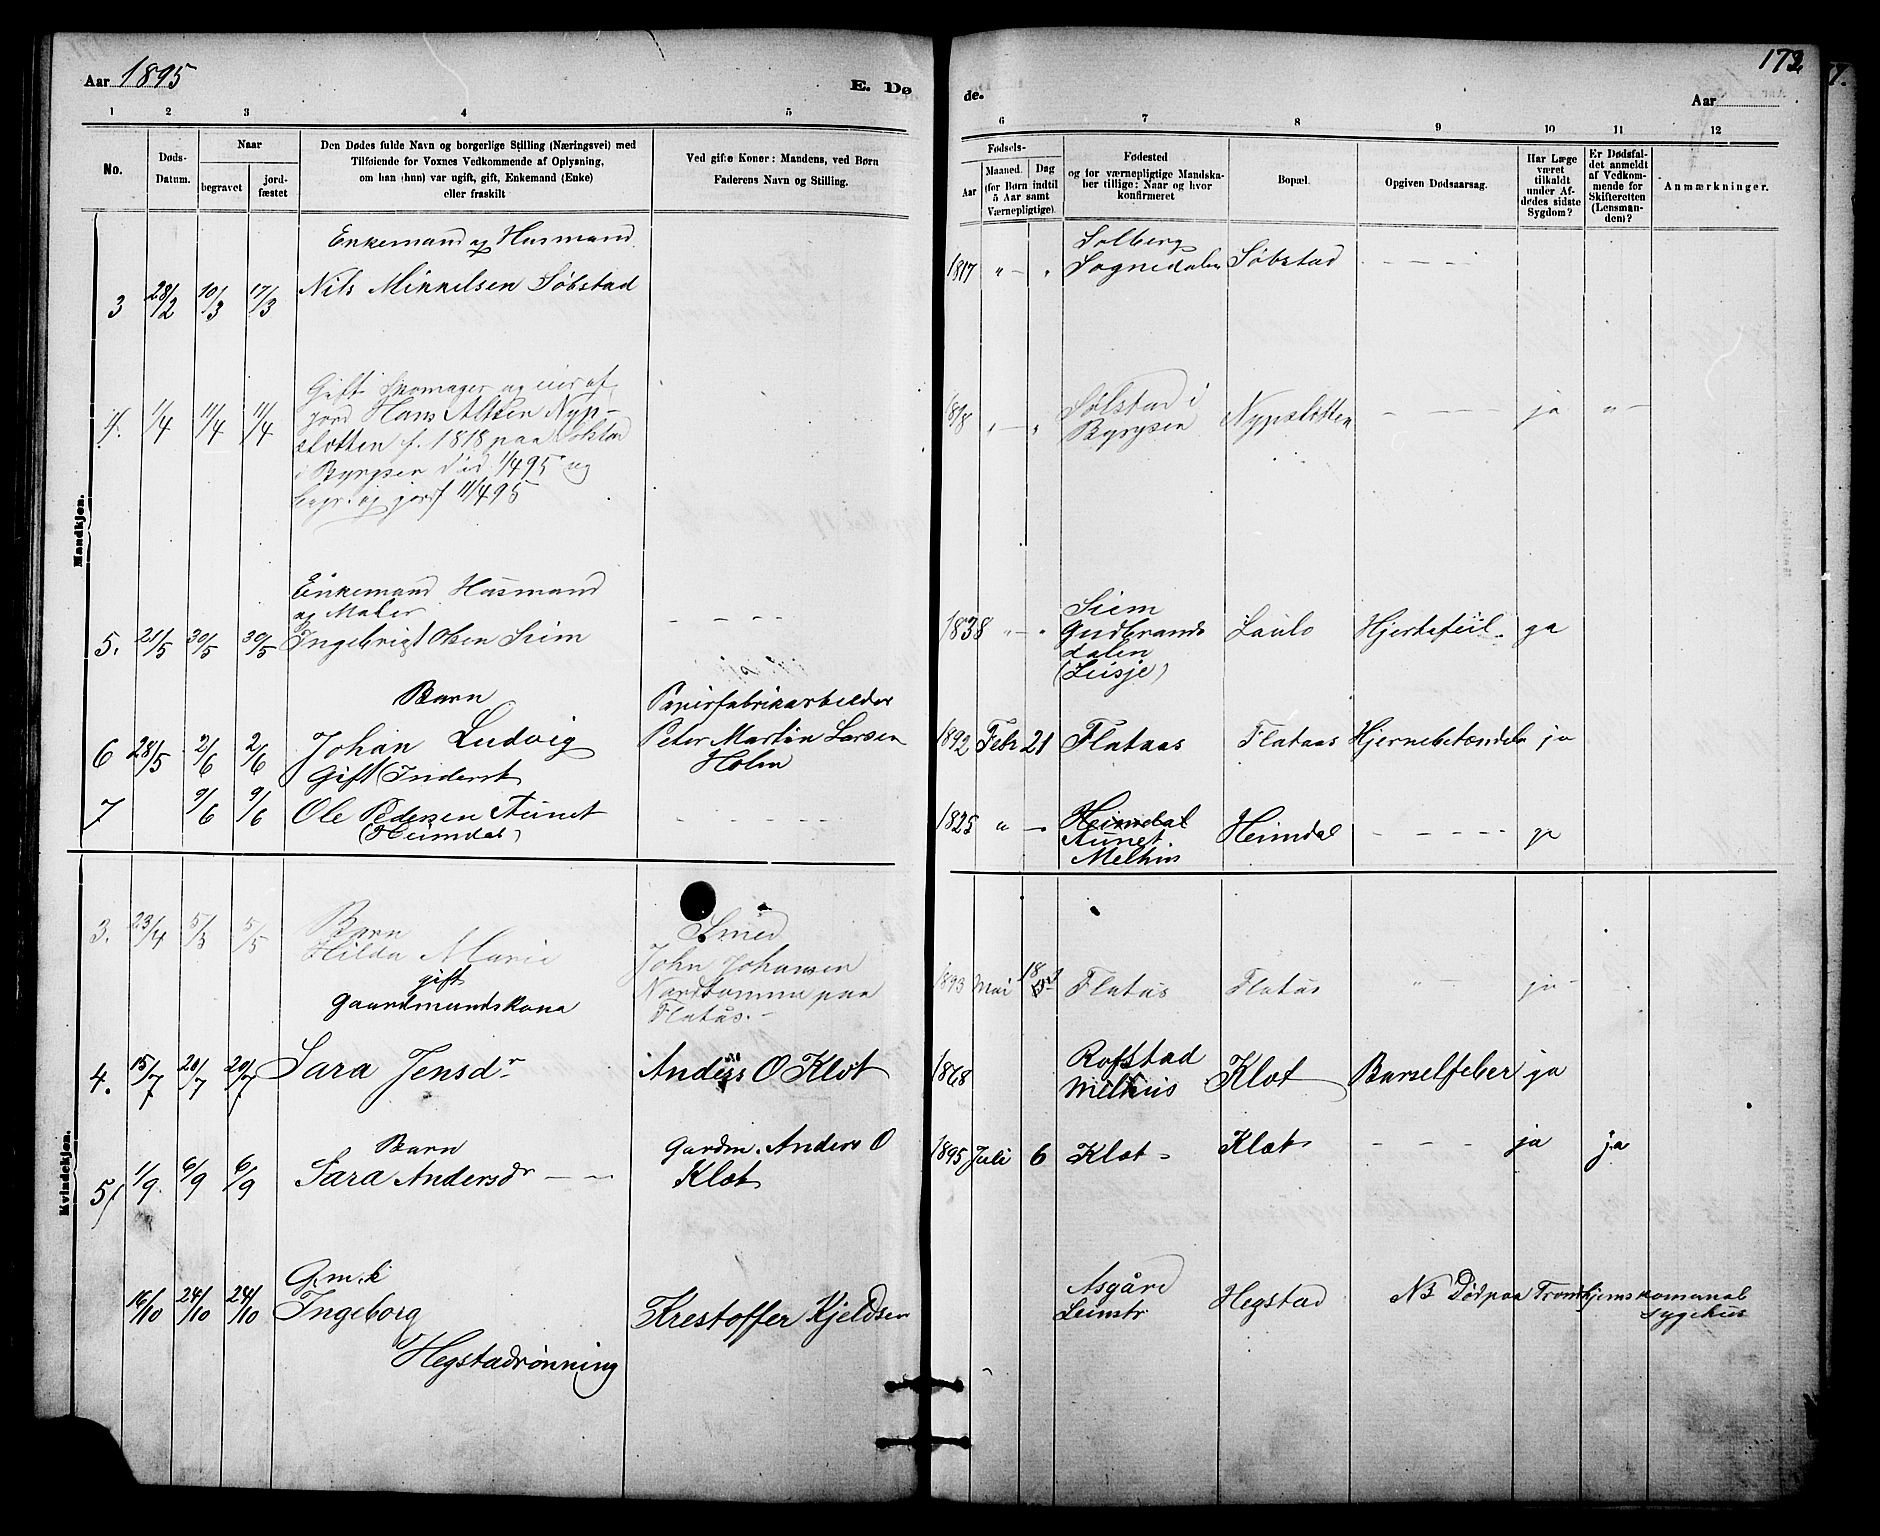 Aar 1895
E. Dø
1 2 3 4 5
No.
Døds-
Datum.
Naar
begravet
jord-
fæstet
Den Dødes fulde Navn og borgerlige Stilling (Næringsvei) med
Tilføiende for Voxnes Vedkommende af Oplysning,
om han (hun) var ugift, gift, Enkemand (Enke)
eller fraskilt
Ved gifte Koner: Mandens, ved Børn
Faderens Navn og Stilling.
Mandkjøn.
Enkemand og Husmand
3 28/2 10/3 17/3 Nils Mikkelsen Søbstad
Gift Skomager og
jord Hans Nyp-
slotten f. 1818 paa
i Byneset død 1/4 95 og
begr. og jordf 11/4 95
4. 1/4 11/4 11/4
Enkemand Husmand
og Maler
5. 21/5 30/5 30/5 Ingebrigt Olsen Siem - - - -
Barn
6 28/5 2/6 2/6 Johan Ludvig
Papirfabrikarbeider
Peter Martin Larsen
Holm
Gift (Inderst
7 9/6 9/6 Ole Pedersen Aunet
(Heimdal)
Kvindekjøn.
3. 23/4 5/5 5/5 Barn
Hilda Marie
Smed
John Johansen
paa
Flatås.-
gift
Gaardmandskona
4. 15/7 20/7 20/7 Sara Jensdr Anders O Klæt
Barn
5/ 1/9 6/9 6/9 Sara Andersdr - -
Gardm. Anders O
Klæt
G.m.k
16/10 24/10 24/10 Ingeborg
Hegstadrønning
Krestoffer Kjeldsen
172
de.
Aar
6 7 8 9 10 11 12
Fødsels-
Aar
Maaned.
Dag
(for Børn indtil
5 Aar samt
Værnepligtige).
Fødested
og for værnepligtige Mandska-
ber tillige: Naar og hvor
konfirmeret
Bopæl.
Opgiven Dødsaarsag.
Har Læge
været
tilkaldt
under Af-
dødes sidste
Sygdom?
Er Dødsfal-
det anmeldt
af Vedkom-
mende for
Skifteretten
(Lensman-
den)?
Anmærkninger.
1817 " - " Solberg
Soknedalen Søbstad - - - - -
1818 " - " Sølstad i
Bynesen Nypslotten - - - - ja " -
1838 " - " Siem
Gudbrands
dalen
(Lesje) Laulo Hjertefeil ja
1892 Feb 21 Flataas Flataas Hjernebetændels ja
1825 " - Heimdal
Aunet.
Melhus Heimdal - - - - - ja
1893 Mai 18 Flatås Flatås " - ja -
1868 Rofstad
Melhus Klæt Barselfeber ja
1895 Juli 6 Klæt - Klæt - - - - ja ja
Asgård
Leinstr Hegstad NB Død paa Trondhjems komunal
sygehus